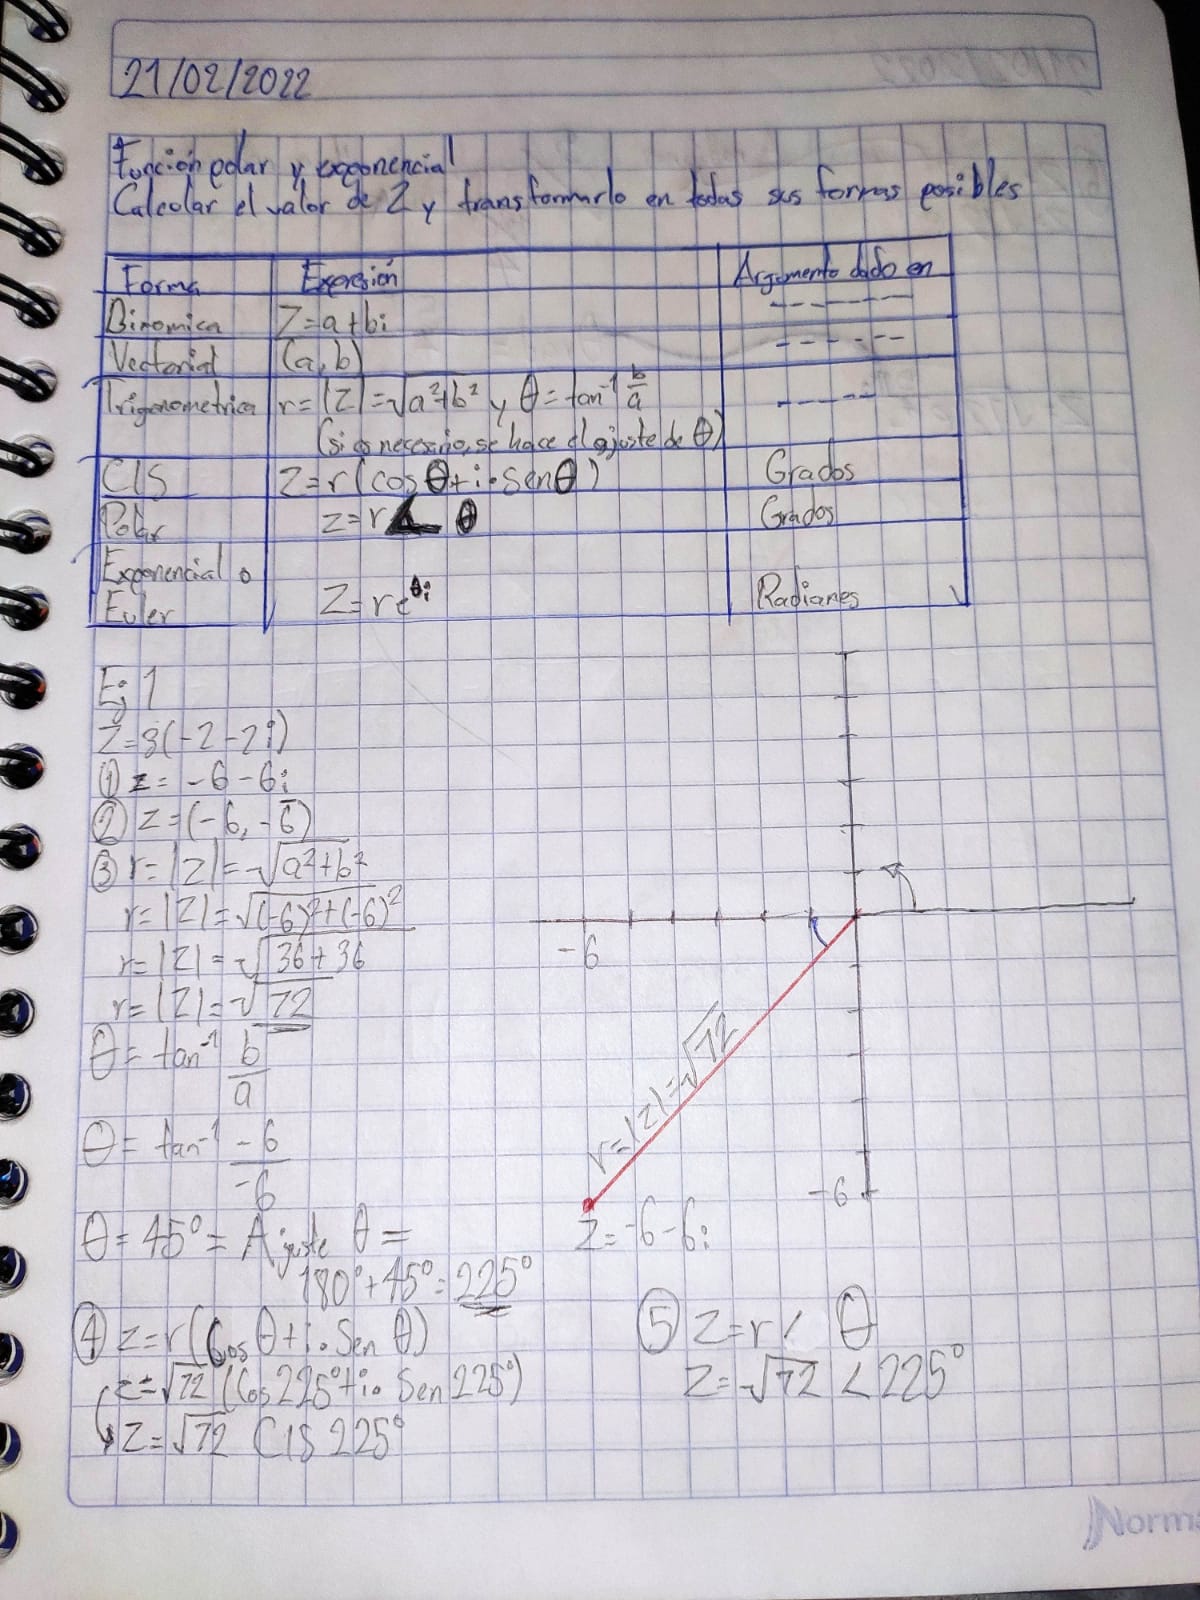 21/02/2022
Función polar y exponencial
Calcular el valor de Z y transformarlo en todas sus formas posibles
Forma Expresión Argumento dado en
Binomica Z=a+bi -------
Vectorial (a,b) ------
Trigonometrica r=|Z|=√a²+b² y θ=tan⁻¹ b/a -----
(si es necesario, se hace el ajuste de θ)
CIS Z=r(cosθ+i·Senθ) Grados
Polar z=r∠ θ Grados
Exponencial o
Euler Z=re^θi Radianes
Ej 1
Z=3(-2-2i)
① z=-6-6i
② Z=(-6,-6)
③ r=|Z|=√a²+b²
r=|Z|=√(-6)²+(-6)²
r=|Z|=√36+36
r=|Z|=√72
θ=tan⁻¹ b/a
θ=tan⁻¹ -6/-6
θ=45°=Ajuste θ=
180°+45°=225°
-6
r=|Z|=√72
-6
Z=-6-6i
④ z=r(Cosθ+i·Senθ)
z=√72(Cos225°+i·Sen225°)
Z=√72 CIS 225°
⑤ Z=r< θ
Z=√72 <225°
Norma